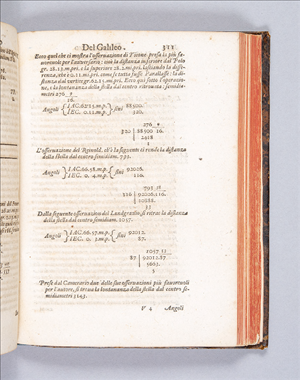 Del Galileo. 311
Ecco quel che ci mostra l'osservazione di Ticone presa la più fa-
uoreuole per l'auuersario; cioè la distanza inferiore dal Polo
gr. 28.13.m.pri. e la superiore 28.2.m.pri. lasciando la diffe-
renza, che è 0.11.m.pri. come se tutta fusse Parallasse: la di-
stanza dal vertice gr.62.15.m.pri. Ecco quì sotto l'operazio-
ne, e la lontananza della stella dal centro ritrouata: semidia-
metri 276
16.
Angoli { IAC.62.15.m.p. } sini 88500.
IEC. 0.12.m.p. 320.
276
320 | 88500 16.
2418
1
L'osservazione del Reinoldo, ch'è la seguente ci rende la distanza
della stella dal centro semidiam. 793.
Angoli { IAC.66.58.m.p. } sini 92026.
IEC. 0. 4.m.p. 116.
793
116 | 92026,116.
10888.
33
Dalla seguente osservazione del Landgrauio si ritrae la distanza
della stella dal centro semidiam. 1057.
Angoli { IAC.66.57.m.p. } sini 92012.
IEC. 0. 3.m.p. 87.
1057
87 | 92012.87
5663.
5
Prese dal Camerario due delle sue osservazioni più fauoreuoli
per l'autore, si troua la lontananza della stella dal centro se-
midiametri 3143.
V 4 Angoli